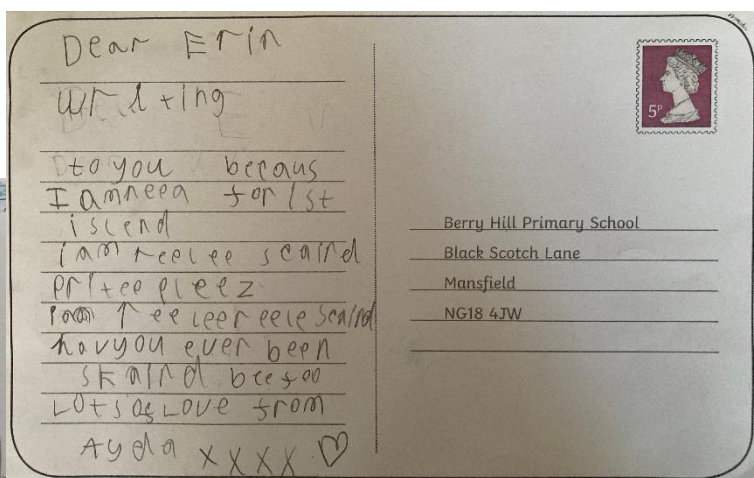 Dear Erin
writing
to you becaus
I amneea for lst
iscend
iam reelee scaird
pritee pleez
iam reeleereele scaird
havyou ever been
skaird beefoo
Lots of Love from
Ayda xxxx
5P
Berry Hill Primary School
Black Scotch Lane
Mansfield
NG18 4JW